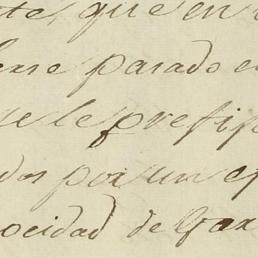 te, que en
parado
se le prefi
dos por un
ocidad de